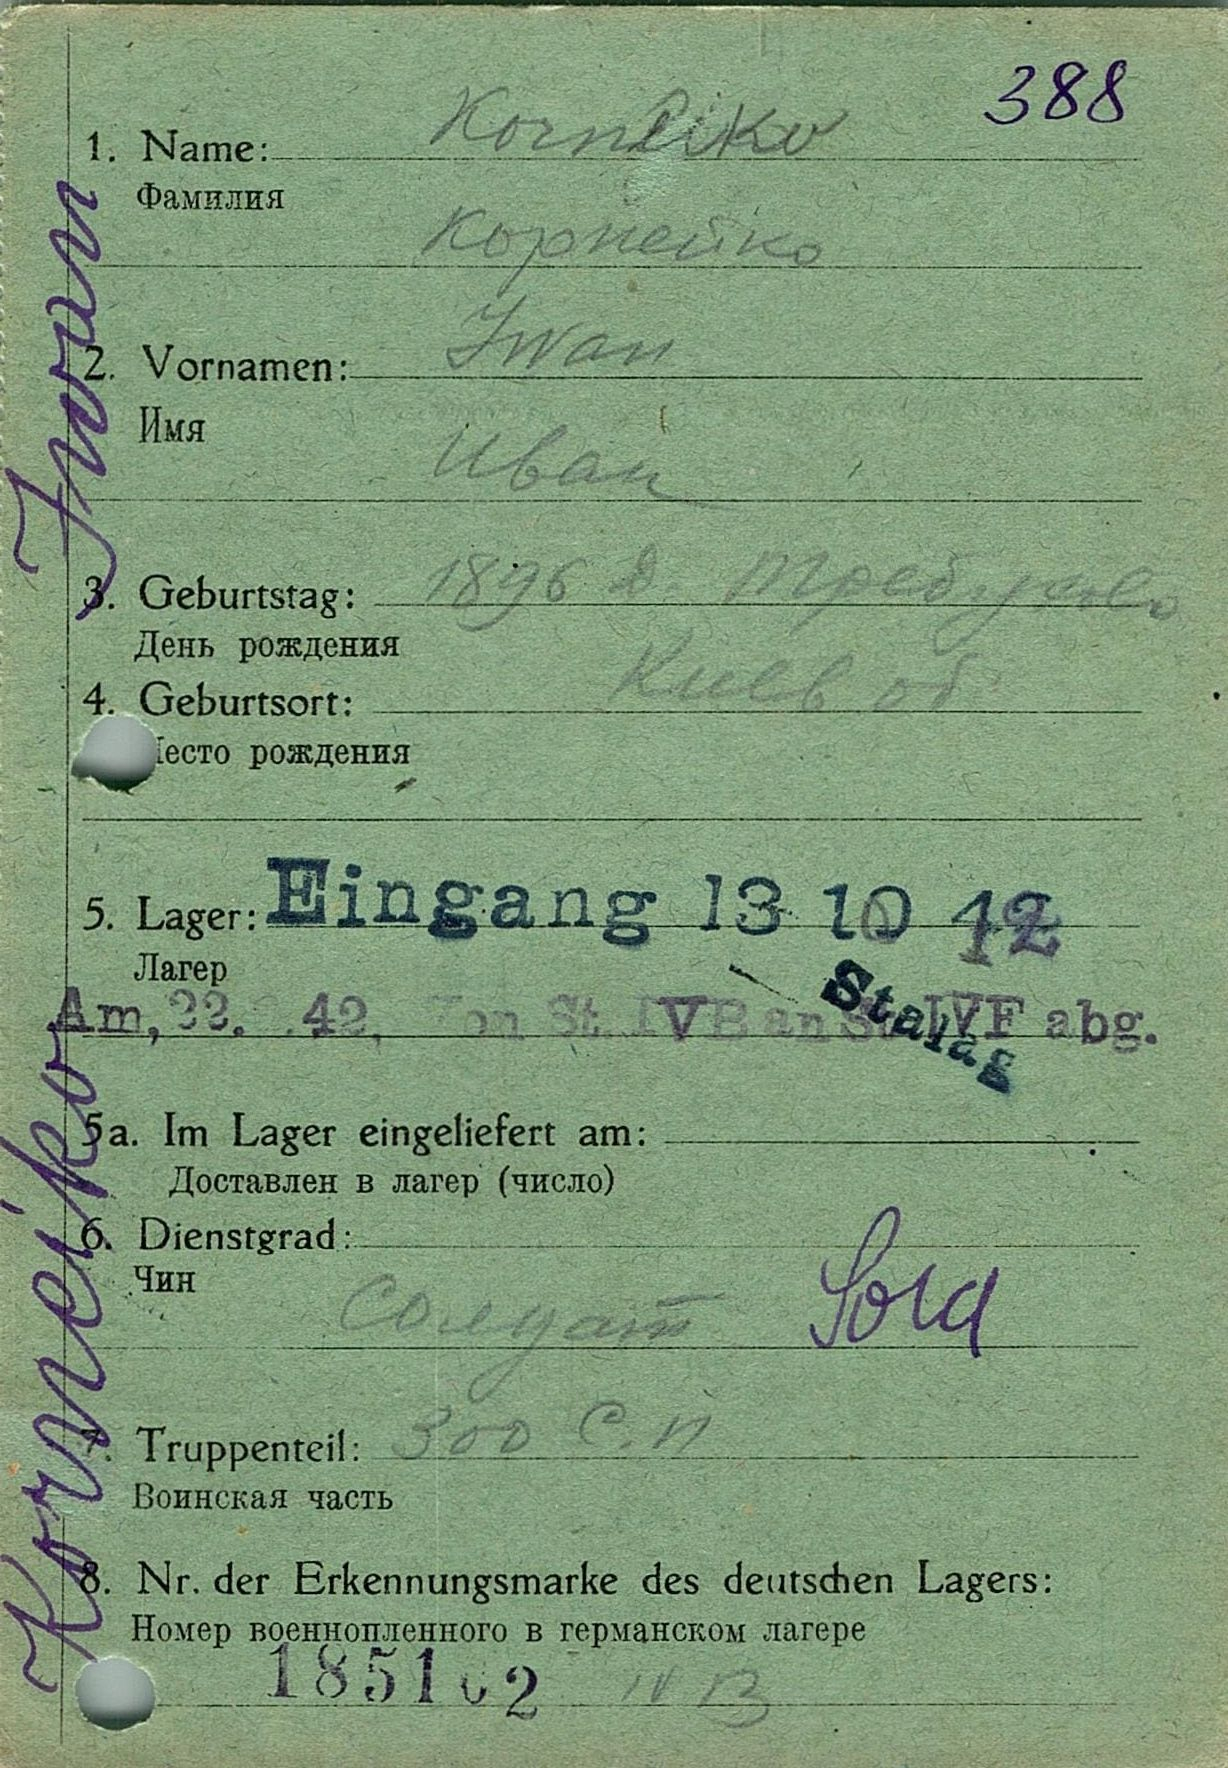 388
1. Name: Korneiko
Фамилия
Корнейко
2. Vornamen: Iwan
Имя
Иван
3. Geburtstag: 1896 д.
День рождения
Киев об
4. Geburtsort:
есто рождения
5. Lager: Eingang 13 10 42
Лагер
Stalag
Am, 22. .42, on St. IVB an St. IVF abg.
5a. Im Lager eingeliefert am:
Доставлен в лагер (число)
6. Dienstgrad:
Чин
Солдат Sold
7. Truppenteil: 300 С.П
Воинская часть
8. Nr. der Erkennungsmarke des deutschen Lagers:
Номер военнопленного в германском лагере
185102 IV B
Korneiko Iwan